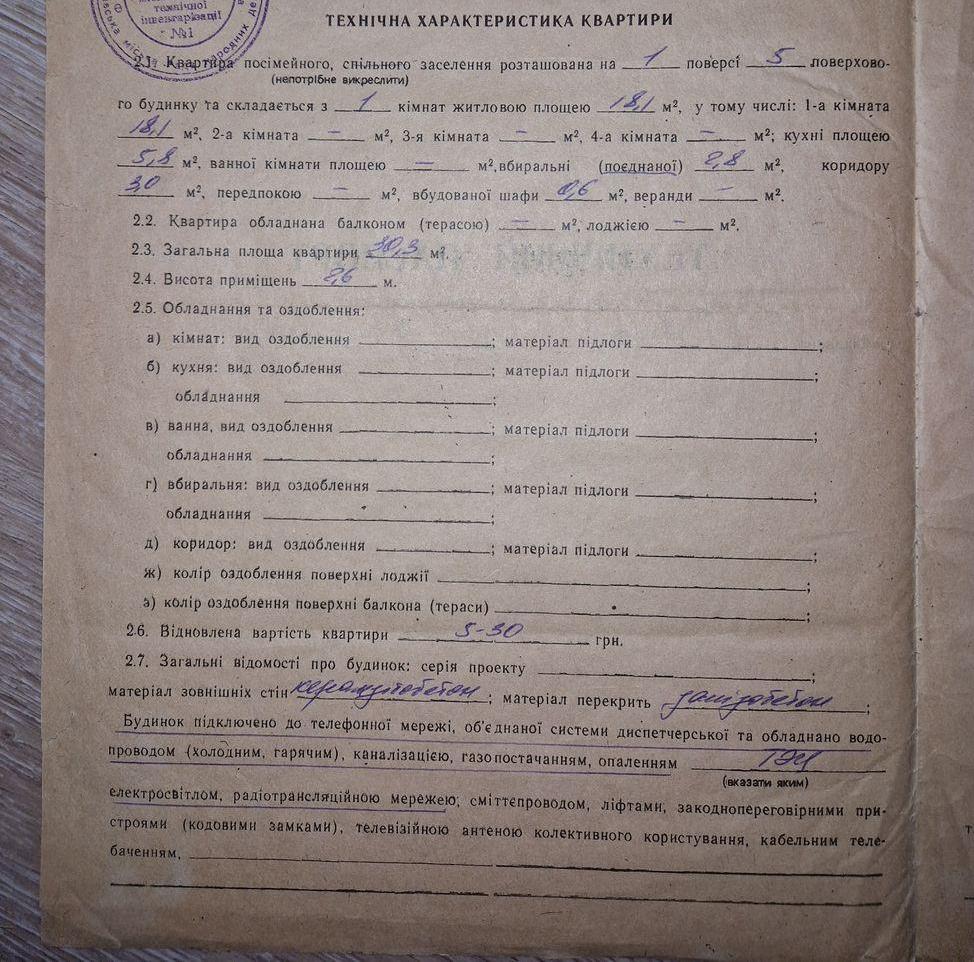 технічної
інвентарізації
№1
ТЕХНІЧНА ХАРАКТЕРИСТИКА КВАРТИРИ
2.1. Квартира посімейного, спільного заселення розташована на 1 поверсі 5 поверхово-
(непотрібне викреслити)
го будинку та складається з 1 кімнат житловою площею 18,1 м², у тому числі: 1-а кімната
18,1 м², 2-а кімната — м², 3-я кімната — м², 4-а кімната — м²; кухні площею
5,8 м², ванної кімнати площею — м², вбиральні (поєднаної) 2,8 м², коридору
3,0 м², передпокою — м², вбудованої шафи 0,6 м², веранди — м².
2.2. Квартира обладнана балконом (терасою) — м², лоджією — м².
2.3. Загальна площа квартири 30,3 м².
2.4. Висота приміщень 2,6 м.
2.5. Обладнання та оздоблення:
а) кімнат: вид оздоблення ; матеріал підлоги ;
б) кухня: вид оздоблення ; матеріал підлоги ;
обладнання ;
в) ванна, вид оздоблення ; матеріал підлоги ;
обладнання ;
г) вбиральня: вид оздоблення ; матеріал підлоги ;
обладнання ;
д) коридор: вид оздоблення ; матеріал підлоги ;
ж) колір оздоблення поверхні лоджії ;
з) колір оздоблення поверхні балкона (тераси) ;
2.6. Відновлена вартість квартири 5-30 грн.
2.7. Загальні відомості про будинок: серія проекту ;
матеріал зовнішніх стін керамзитобетон ; матеріал перекрить залізобетон ;
Будинок підключено до телефонної мережі, об'єднаної системи диспетчерської та обладнано водо-
проводом (холодним, гарячим), каналізацією, газопостачанням, опаленням ТЭЦ
(вказати яким)
електросвітлом, радіотрансляційною мережею, сміттєпроводом, ліфтами, закоднопереговірними при-
строями (кодовими замками), телевізійною антеною колективного користування, кабельним теле-
баченням,